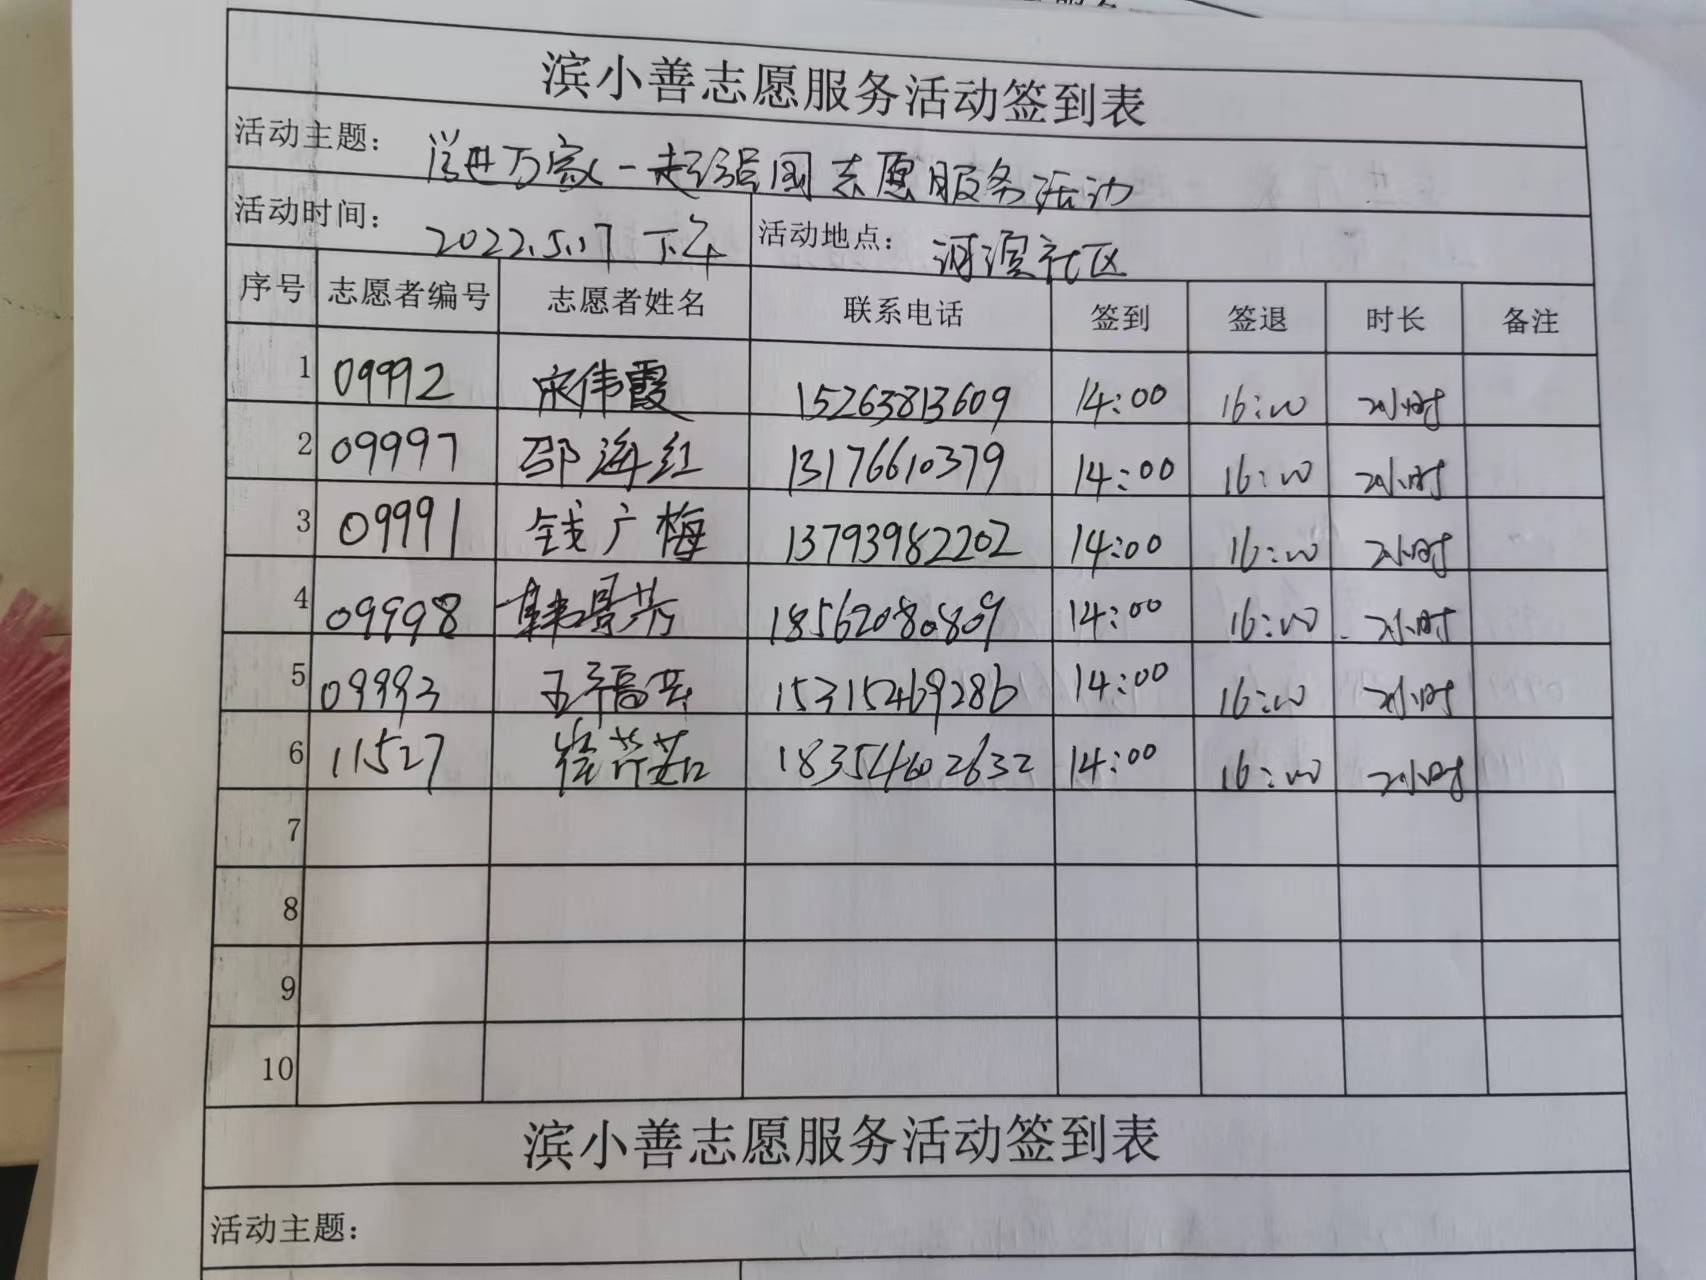 滨小善志愿服务活动签到表
活动主题： 学进万家一起强国志愿服务活动
活动时间： 2022.5.17 下午 活动地点： 河滨社区
序号 志愿者编号 志愿者姓名 联系电话 签到 签退 时长 备注
1 09992 宋伟霞 15263813609 14:00 16:00 2小时
2 09997 邵海红 13176610379 14:00 16:00 2小时
3 09991 钱广梅 13793982202 14:00 16:00 2小时
4 09998 韩 芳 18562080809 14:00 16:00 2小时
5 09993 王福兵 15315469286 14:00 16:00 2小时
6 11527 崔芹茹 18354602632 14:00 16:00 2小时
7
8
9
10
滨小善志愿服务活动签到表
活动主题：